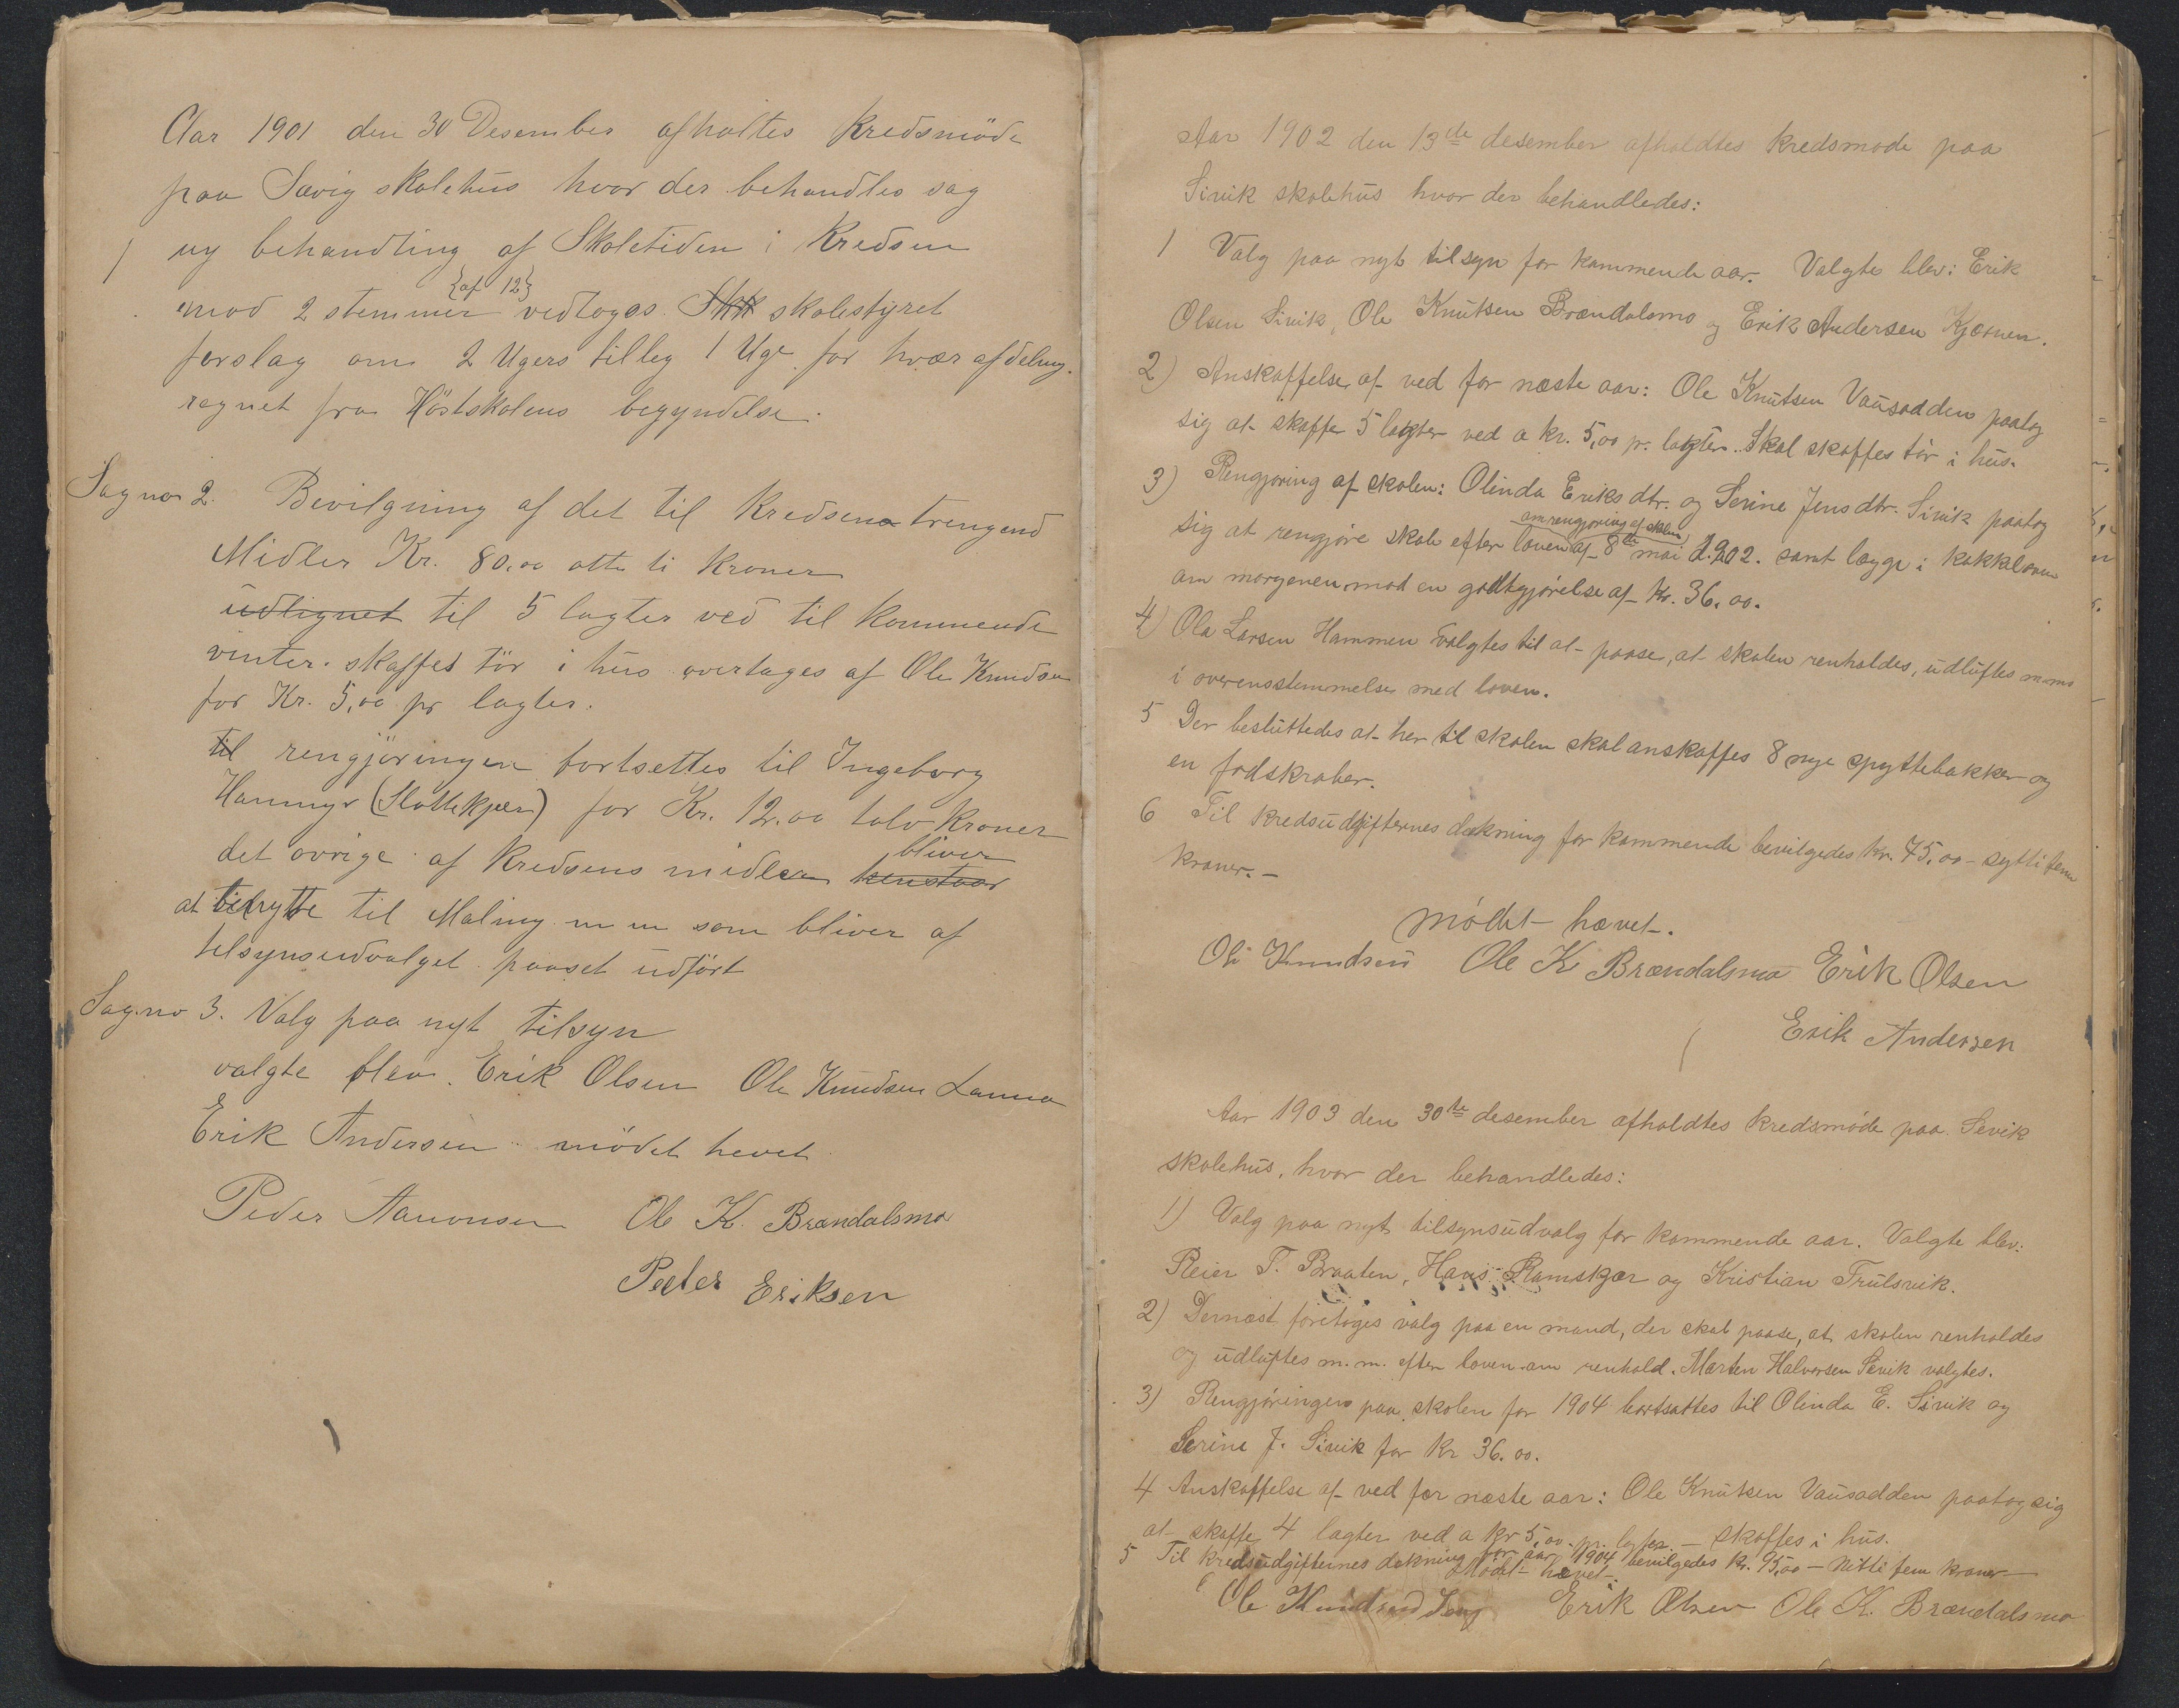 Aar 1901 den 30 Desember afholtes Kredsmöde
paa Sævig skolehus hvor der behandles sag
1 ny behandling af Skoletiden i Kredsen
mod 2 stemmer {af 12} vedtoges skolestyret
forslag om 2 Ugers tilleg 1 Uge for hvær afdeling.
regnet fra Höstskolens begyndelse.
Sag no 2. Bevilgning af det til Kredsene trengend
Midler Kr. 80,00 otte ti Kroner
udlignet til 5 lagter ved til Kommende
vinter. skaffes tör i hus overtages af Ole Knudsen
for Kr. 5,00 pr lagter.
til rengjöringen bortsettes til Ingeborg
Hammyr (Slottekjær) for Kr. 12.00 tolv Kroner
det ovrige af Kredsens midler bliver
at benytte til Maling m m som bliver af
telsynsudvalget paaset udført
Sag no 3. Valg paa nyt tilsyn
valgte blev. Erik Olsen Ole Knudsen
Erik Andersen mödet hevet
Peder Aamonsen Ole K. Brændalsmo
Peder Eriksen
Aar 1902 den 13de desember afholdtes kredsmøde paa
Sivik skolehus hvor der behandledes:
1 Valg paa nyt tilsyn for kommende aar. Valgte blev: Erik
Olsen Sivik, Ole Knutsen Brændalsmo og Erik Andersen Kjærnen.
2) Anskaffelse af ved for næste aar: Ole Knutsen Vausodden paatog
sig at skaffe 5 lagter ved a kr. 5,00 pr. lagter. Skal skaffes tör i hus.
3) Rengjøring af skolen: Olinda Eriks dtr. og Serine Jens dtr. Sivik paatog
sig at rengjøre skole efter loven om rengjøring af skolen af 8de mai 1902. samt lægge i kakkelovnen
om morgenen mod en godtgjørelse af Kr. 36.00.
4) Ola Larsen Hammen valgtes til at paase, at skolen renholdes, udluftes m.m.
i overensstemmelse med loven.
5 Der besluttedes at her til skolen skal anskaffes 8 nye spyttebakker og
en fodskraber.
6 Til kredsudgifternes dækning for kommende bevilgedes kr. 75,00 - sytti fem
kroner. -
Mødet hævet.
Ole Knudsen Ole K Brændalsmo Erik Olsen
Erik Andersen
Aar 1903 den 30te desember afholdtes kredsmøde paa Sevik
skolehus, hvor der behandledes:
1) Valg paa nyt tilsynsudvalg for kommende aar. Valgte blev:
Reier T. Braaten, Hans Ramskjær og Kristian Trulsvik.
2) Dernæst foretoges valg paa en mand, der skal paase, at skolen renholdes
og udluftes m.m. efter loven om renhold. Marten Halvorsen Sevik valgtes.
3) Rengjøringen paa skolen for 1904 bortsattes til Olinda E. Sivik og
Serine J. Sivik for Kr 36.00.
4 Anskaffelse af ved for næste aar: Ole Knutsen Vausodden paatog sig
at skaffe 4 lagter ved a kr 5,00 pr. lagter. - skaffes i hus.
5 Til kredsudgifternes dækning for aar 1904 bevilgedes kr. 95,00 - nitti fem kroner
Mødet hævet.
Ole Knudsen Erik Olsen Ole K. Brændalsmo